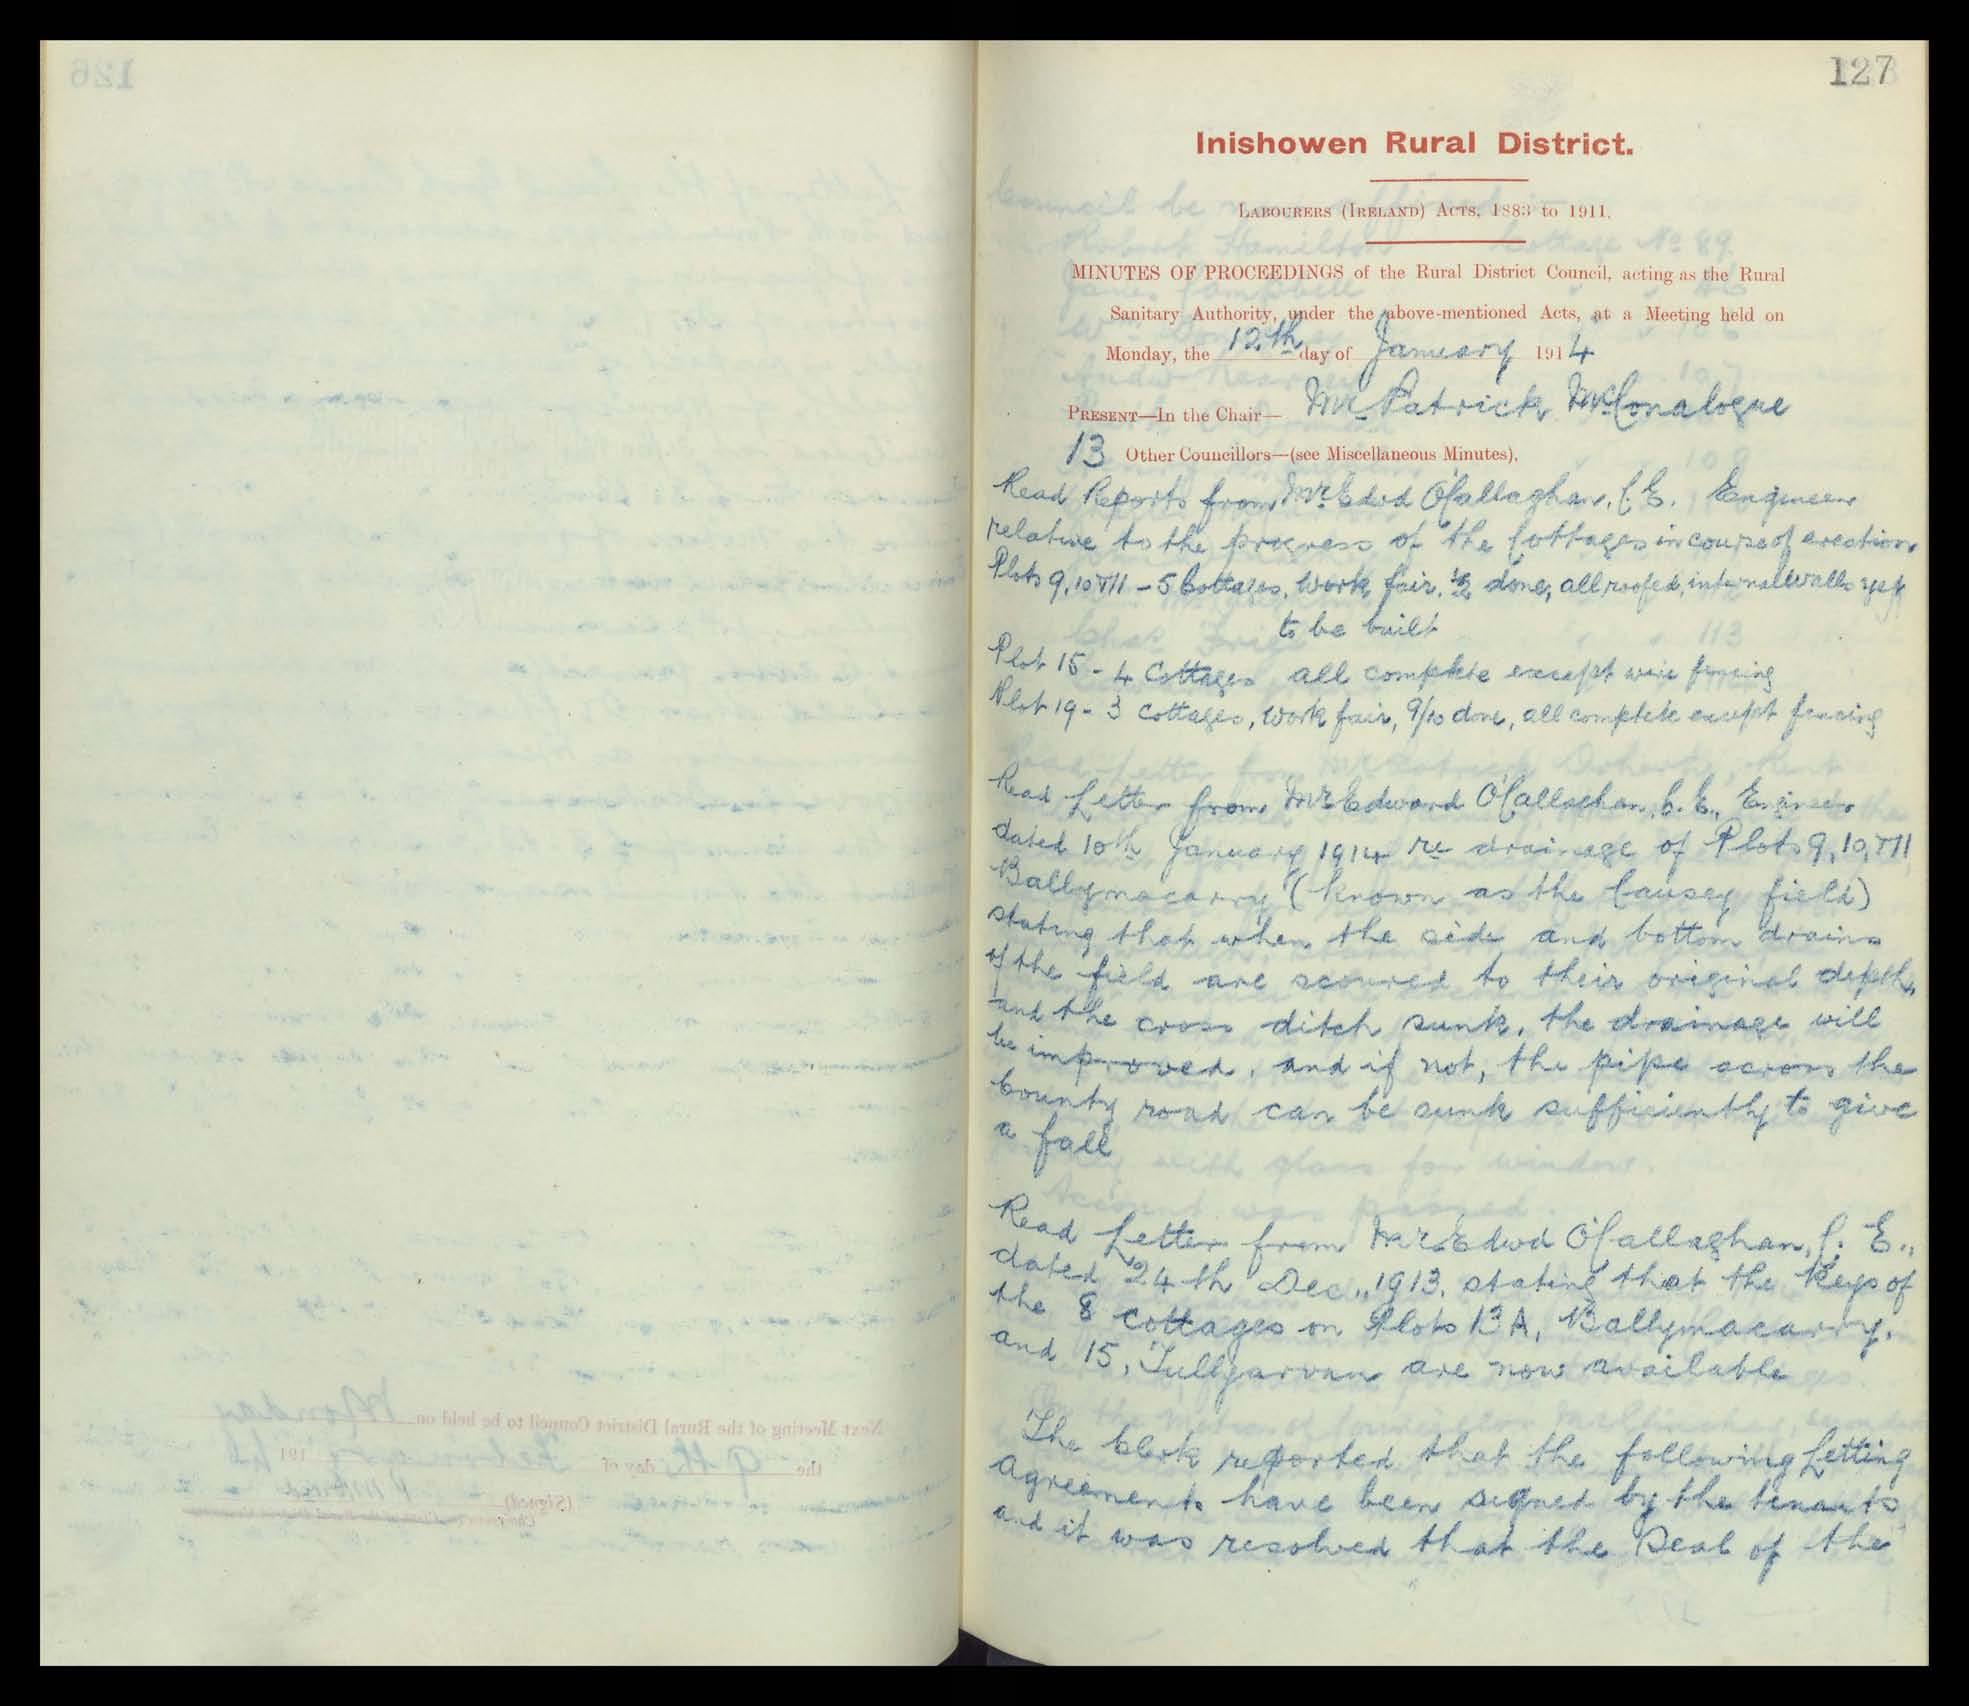 127
Inishowen Rural District.
LABOURERS (IRELAND) ACTS, 1883 to 1911.
MINUTES OF PROCEEDINGS of the Rural District Council, acting as the Rural
Sanitary Authority, under the above-mentioned Acts, at a Meeting held on
Monday, the 12th day of January 1914
PRESENT—In the Chair— Mr Patrick McConalogue
13 Other Councillors—(see Miscellaneous Minutes).
Read Reports from Mr Edwd O'Callaghan, C.E. Engineer
relative to the progress of the Cottages in course of erection
Plots 9, 10 & 11 - 5 Cottages, Work fair, ½ done, all roofed, internal walls yet
to be built
Plot 15 - 4 Cottages all complete except wire fencing
Plot 19 - 3 cottages, work fair, 9/10 done, all complete except fencing
Read Letter from Mr Edward O'Callaghan, C.E., Engineer
dated 10th January 1914 re drainage of Plots 9, 10, & 11
Ballymacarry (known as the Causey field)
stating that when the side and bottom drains
of the field are scoured to their original depth,
and the cross ditch sunk, the drainage will
be improved, and if not, the pipe across the
County road can be sunk sufficiently to give
a fall
Read Letter from Mr Edwd O'Callaghan, C.E.,
dated 24th Dec., 1913, stating that the keys of
the 8 cottages on Plots 13A, Ballymacarry,
and 15, Tullyarvan are now available
The Clerk reported that the following Letting
Agreements have been signed by the tenants
and it was resolved that the Seal of the